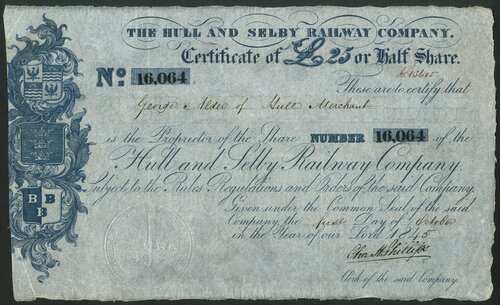 THE HULL AND SELBY RAILWAY COMPANY.
Certificate of £25 or Half Share.
No. 16,064
These are to certify that
George of Hull Merchant
is the Proprietor of the Share NUMBER 16,064 of the
Hull and Selby Railway Company,
subject to the Rules Regulations and Orders of the said Company.
Given under the Common Seal of the said
Company the first Day of October
in the Year of our Lord 1845
Phillips
Clerk of the said Company.
B B
B